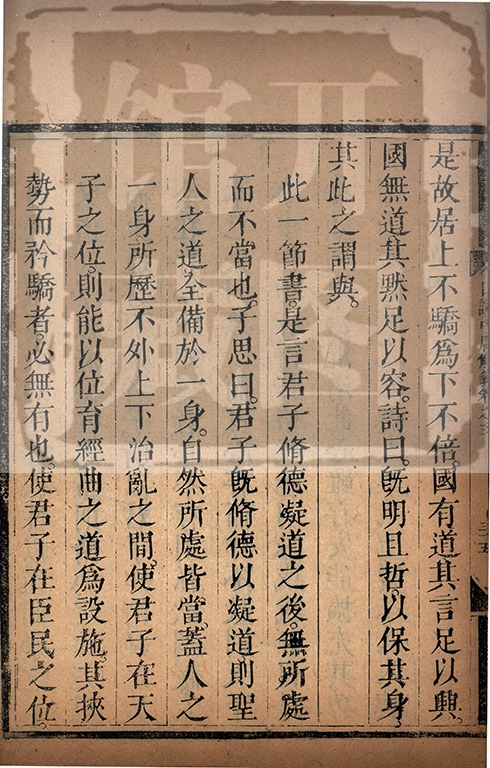 是故居上不驕為下不倍。國有道其言足以興。
國無道其黙足以容。詩曰。旣明且哲。以保其身。
其此之謂與。
此一節書。是言君子脩德凝道之後。無所處
而不當也。子思曰。君子旣脩德以凝道則聖
人之道。全備於一身。自然所處皆當。蓋人之
一身所歷不外上下治亂之間。使君子在天
子之位。則能以位育經曲之道為設施。其挾
勢而矜驕者。必無有也。使君子在臣民之位。